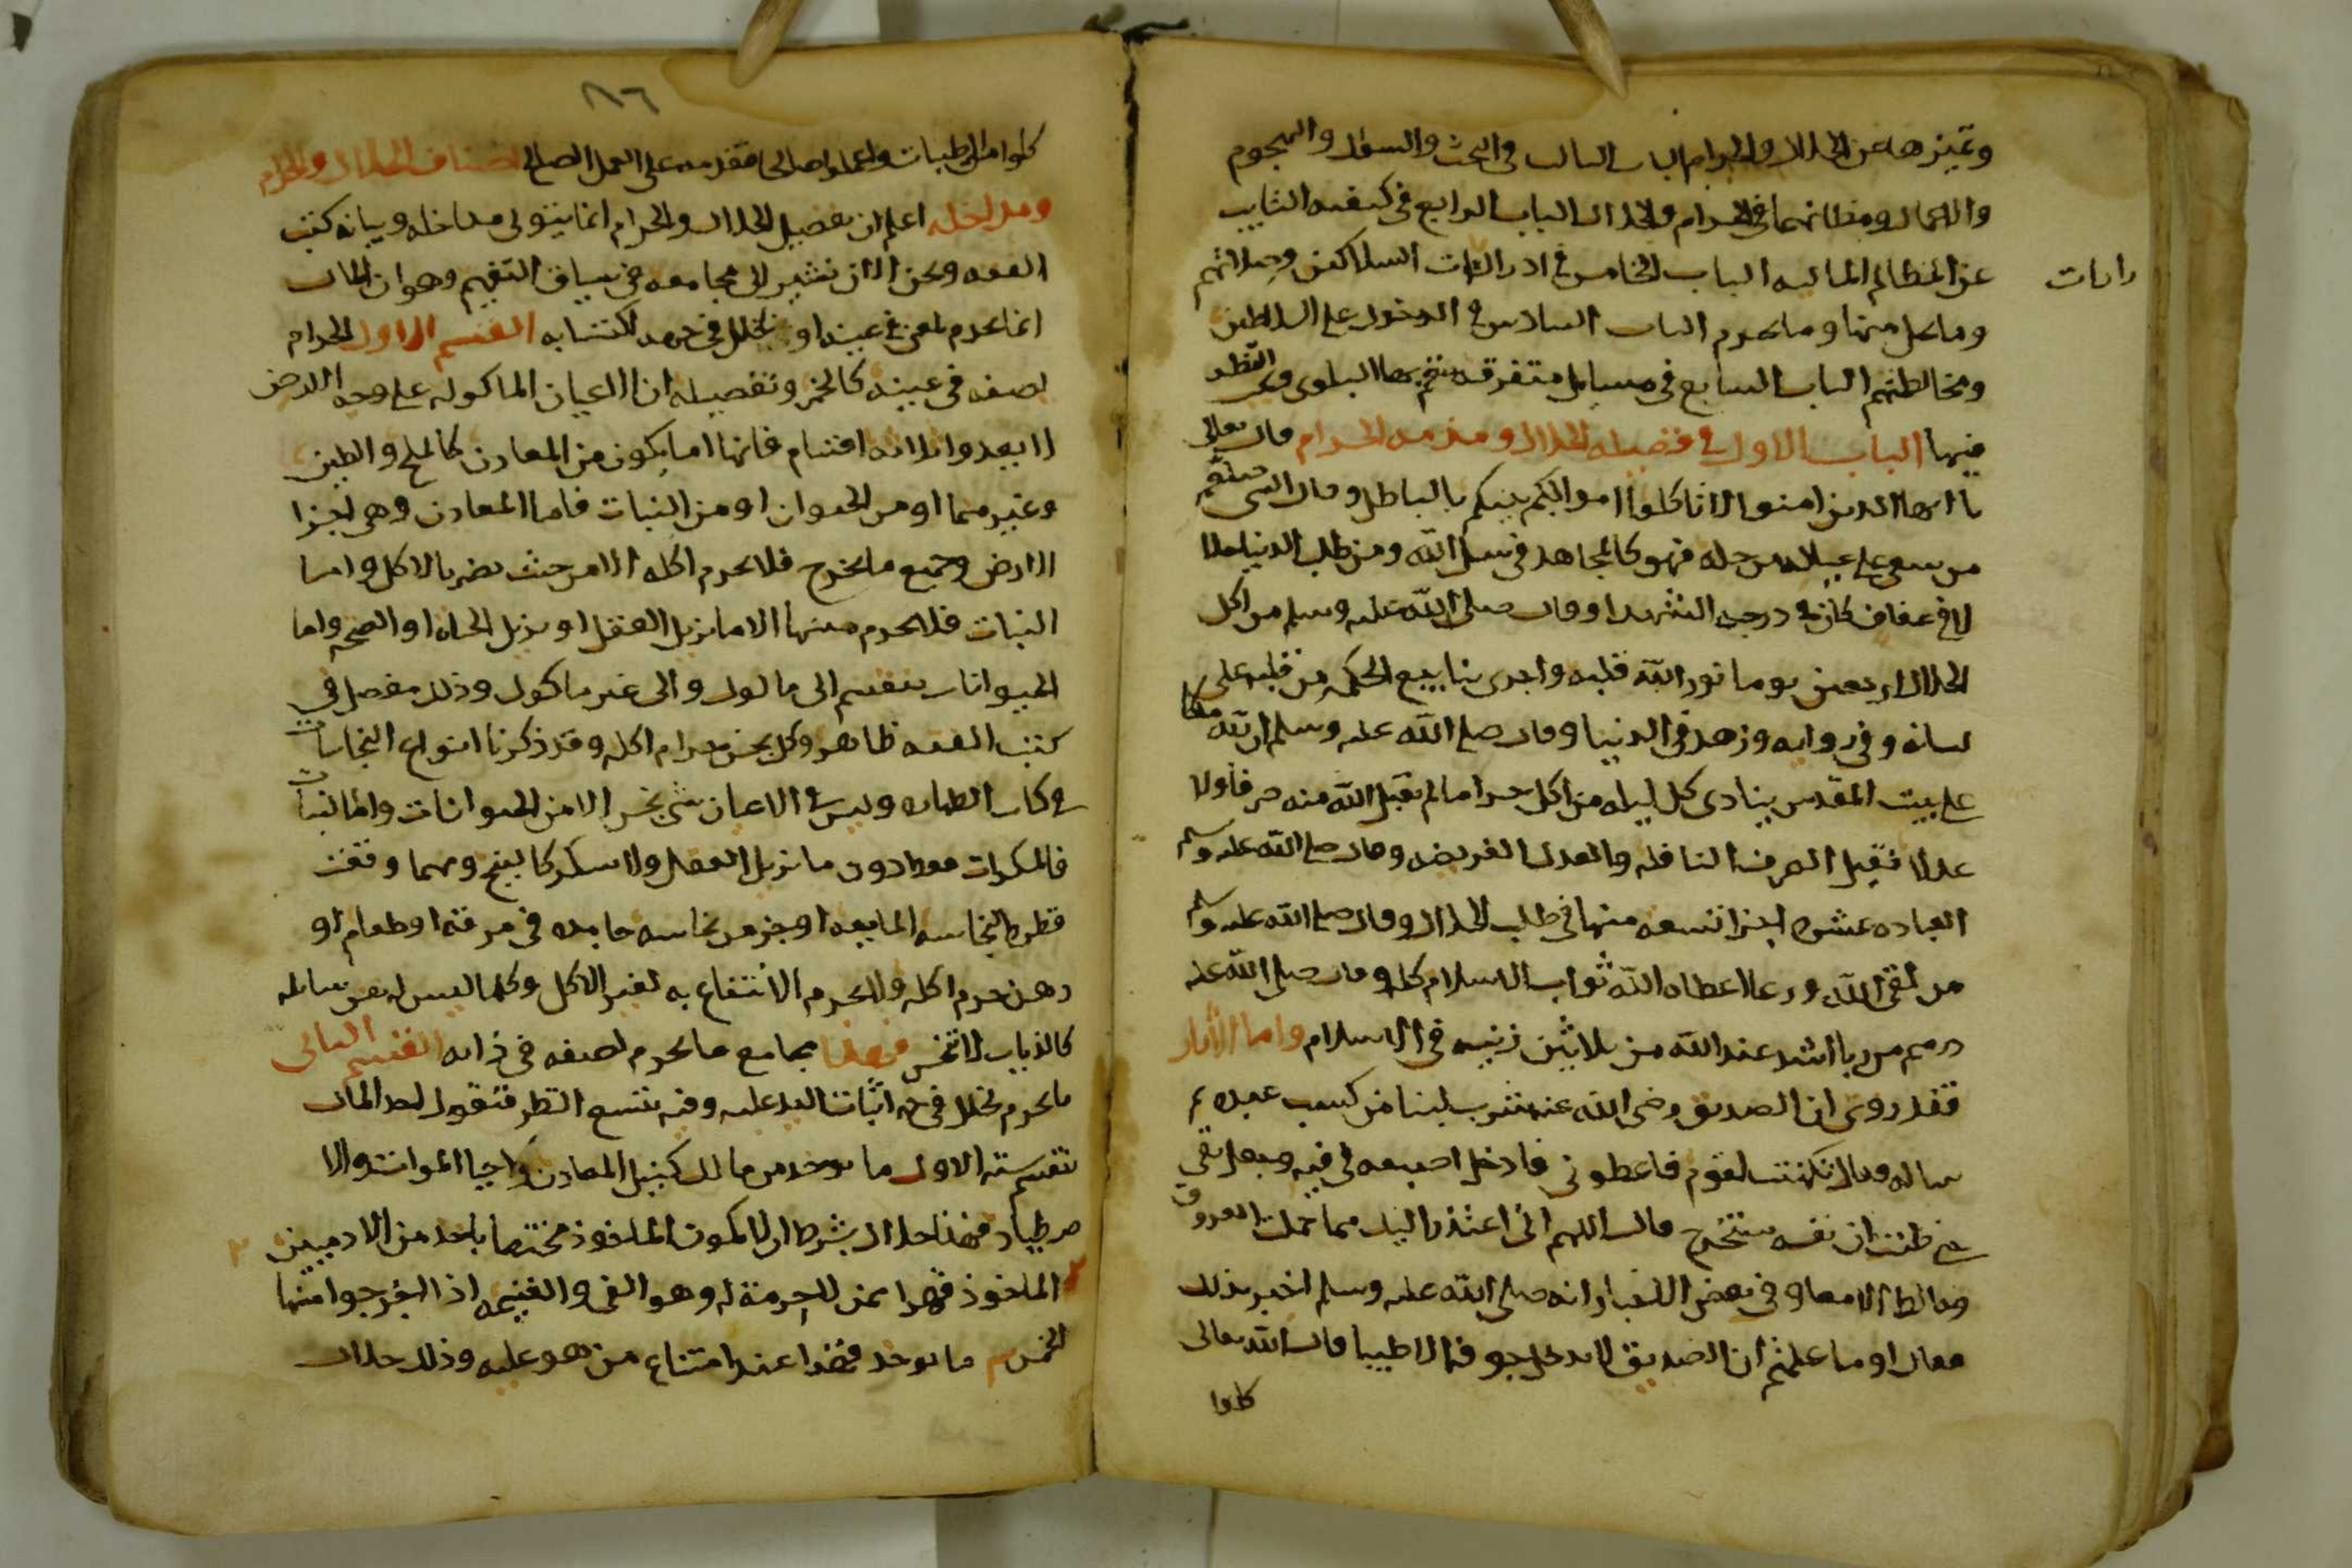 وتميزهما عن الحلال والحرام الباب الثالث في البحث والسؤال والهجوم
والاهمال ومظانهما في الحرام والحلال الباب الرابع في كيفيه التايب
عن المظالم الماليه الباب الخامس في ادرارات السلاطين وصلاتهم
رارات
وما يحل منها وما يحرم الباب السادس في الدخول على السلاطين
ومخالطتهم الباب السابع في مسايل متفرقه تعم بها البلوى النظر
فيها الباب الاول في فضيله الحلال ومذمه الحرام قال تعالى
يا ايها الذين امنوا لا تاكلوا اموالكم بينكم بالباطل وقال النبي صلعم
من سعى على عياله من حله فهو كالمجاهد في سبيل الله ومن طلب الدنيا حلالا
في عفاف كان في درجه الشهدا وقال صلى الله عليه وسلم من اكل
الحلال اربعين يوما نور الله قلبه واجرى ينابيع الحكمه من قلبه على
لسانه وفي روايه وزهد في الدنيا وقال صلى الله عليه وسلم ان لله ملكا
على بيت المقدس ينادي كل ليله من اكل حراما لم يقبل الله منه صرفا ولا
عدلا فقيل الصرف النافله والعدل الفريضه وقال صلى الله عليه وسلم
العباده عشره اجزا تسعه منها في طلب الحلال وقال صلى الله عليه وسلم
من لقي الله ورعا اعطاه الله ثواب الاسلام كله وقال صلى الله عليه
درهم من ربا اشد عند الله من ثلاثين زنيه في الاسلام واما الآثار
فقد روي ان الصديق رضي الله عنه شرب لبنا من كسب عبده ثم
ساله وقال تكهنت لقوم فاعطوني فادخل اصبعه في فيه وجعل يقي
حتى ظننت ان نفسه ستخرج قال اللهم اني اعتذر اليك مما حملت العروق
وخالط الامعا وفي بعض الاخبار انه صلى الله عليه وسلم اخبر بذلك
فقال او ما علمتم ان الصديق لا يدخل جوفه الا طيبا قال الله تعالى
كلوا
٨٦
كلوا من الطيبات واعملوا صالحا فقدمه على العمل الصالح اصناف الحلال والحرام
ومداخله اعلم ان تفصيل الحلال والحرام انما يتولى مداخله وبيانه كتب
الفقه ونحن الان نشير الى مجامعه في سياق التقسيم وهو ان المال
انما يحرم لمعنى في عينه او لخلل في جهه اكتسابه القسم الاول الحرام
لصفه في عينه كالخمر وتفصيله ان الاعيان الماكوله على وجه الارض
لا يعدوا ثلاثه اقسام فانها اما يكون من المعادن كالملح والطين
وغيرهما او من الحيوان او من النبات فاما المعادن وهي اجزا
الارض وجميع ما يخرج فلا يحرم اكله الا من حيث يضر بالاكل واما
النبات فلا يحرم منها الا ما يزيل العقل او يزيل الحياه او الصحه واما
الحيوانات ينقسم الى ماكول والى غير ماكول وذلك مفصل في
كتب الفقه ظاهر وكل نجس حرام اكله وقد ذكرنا انواع النجاسات
في كتاب الطهاره وليس في الاعيان شي نجس الا من الحيوانات واما النباتات
فالمسكرات دون ما يزيل العقل ولا يسكر كالبنج ومهما وقعت
قطره النجاسه المايعه او جزء من نجاسه جامده في مرقه او طعام او
دهن حرم اكله ولا يحرم الانتفاع به لغير الاكل وكلما ليس له نفس سايله
كالذباب لا تنجس فهذا مجامع ما يحرم لصفه في ذاته القسم الثاني
ما يحرم لخلل في جهه اثبات اليد عليه وفيه يتسع النظر فنقول اخذ المال
ستة الاول ما يوخذ من مالك كنيل المعادن واحيا الموات والا
صطياد فهذا حلال بشرط ان لا يكون الماخوذ مختصا باحد من الادميين ٢
الماخوذ قهرا ممن لا حرمة له وهو الفي والغنيمه اذا اخرجوا منها
الخمس م ما يوخذ قهرا عند امتناع من هو عليه وذلك حلال